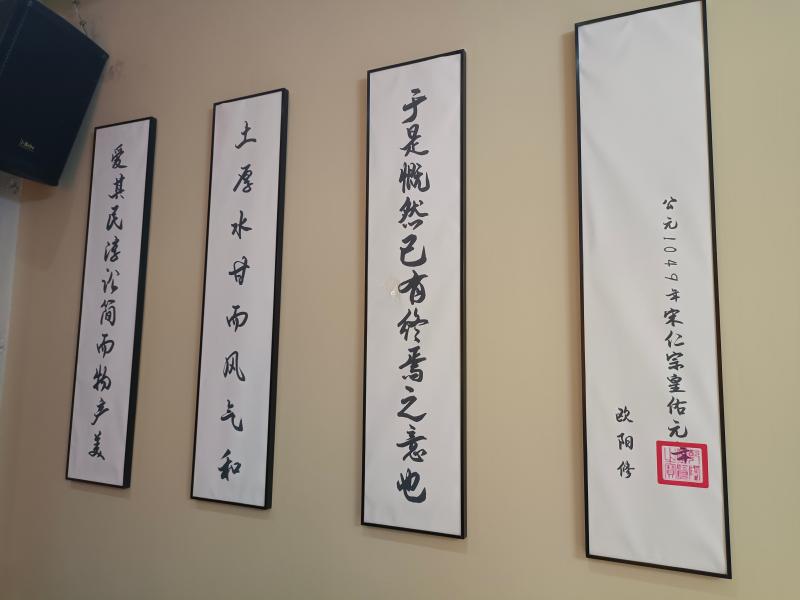 爱其民淳讼简而物产美
土厚水甘而风气和
于是慨然已有终焉之意也
公元1049年宋仁宗皇佑元年
欧阳修